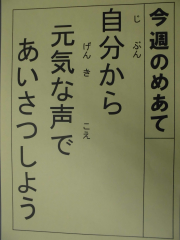 今週のめあて
じぶん
自分から
げんき こえ
元気な声で
あいさつしよう